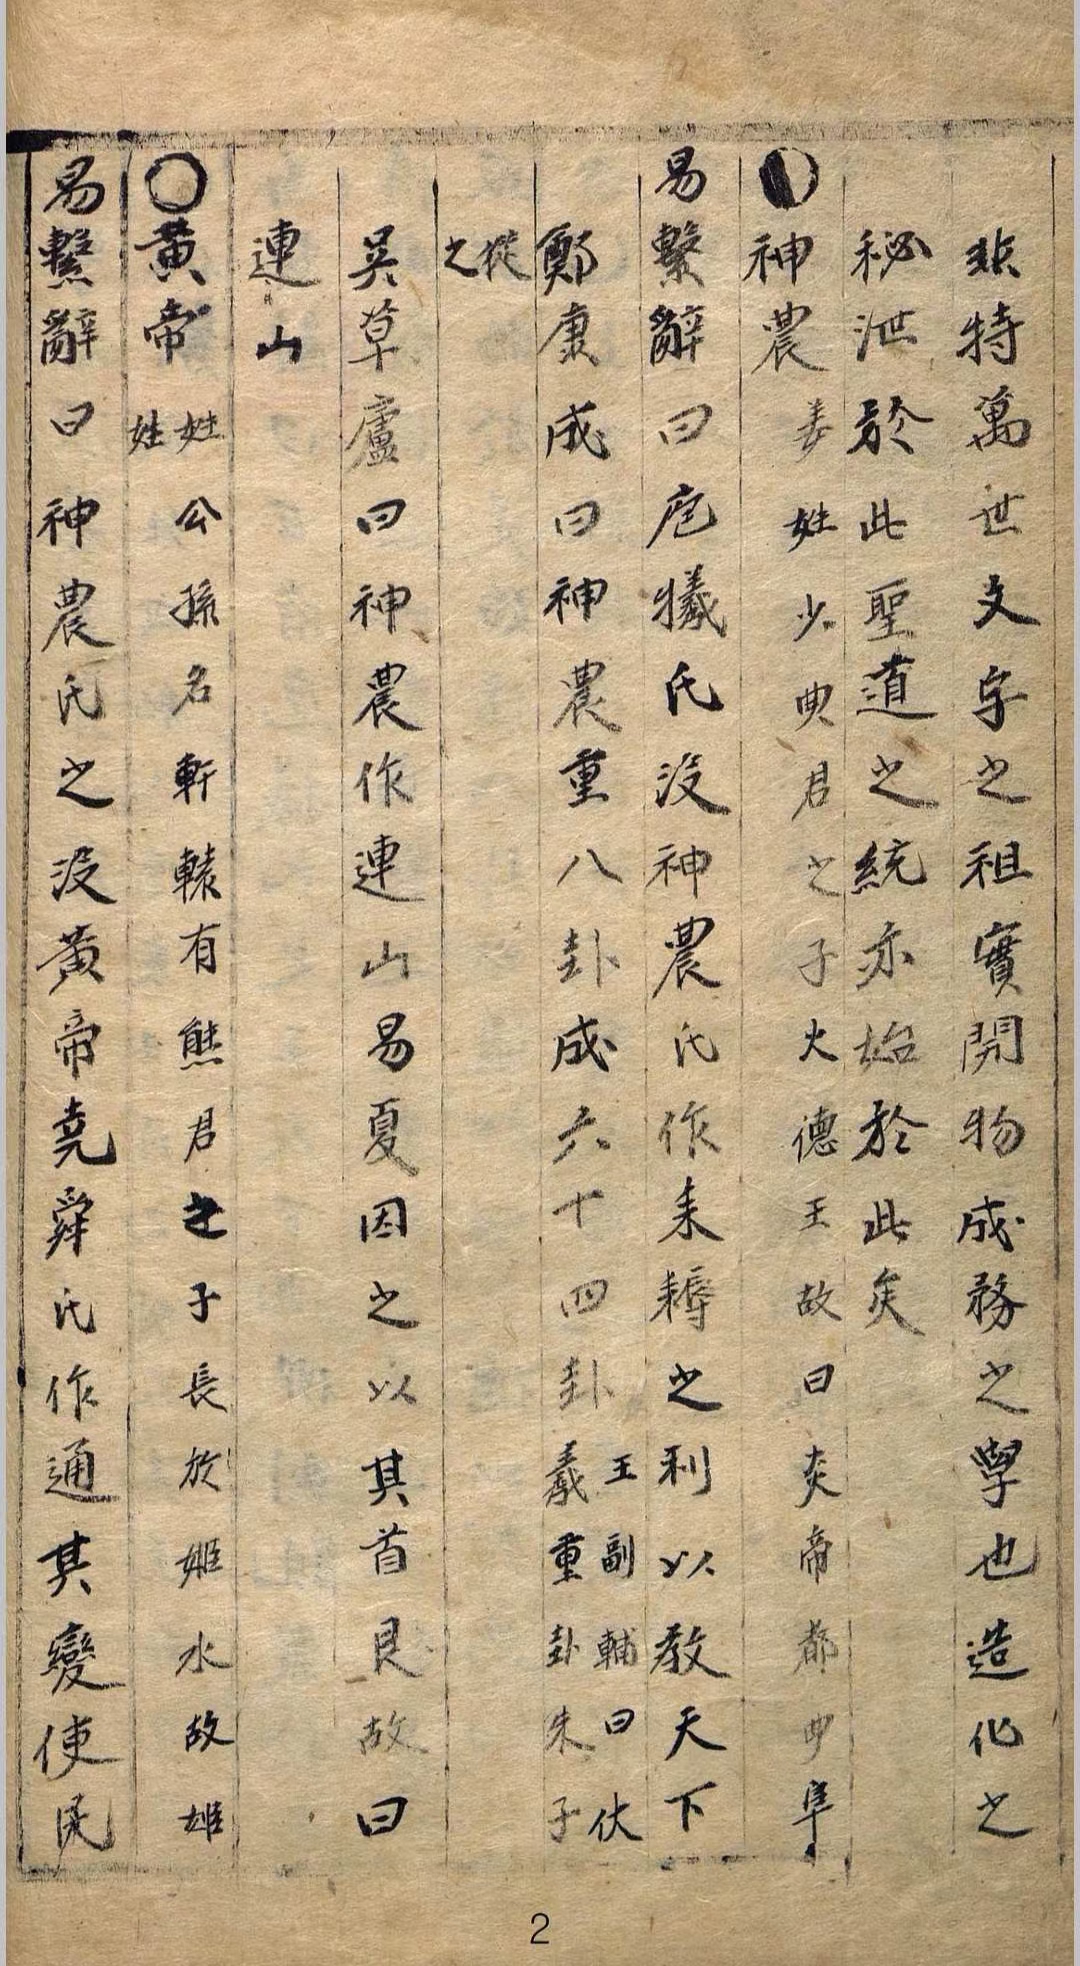 非特萬世文字之祖實開物成務之學也造化之
秘泄於此聖道之統亦始於此矣
神農姜姓少典君之子火德王故曰炎帝都曲阜
易繫辭曰庖犧氏沒神農氏作耒耨之利以教天下
鄭康成曰神農重八卦成六十四卦王副輔曰伏羲重卦朱子
從之
吳草廬曰神農作連山易夏因之以其首艮故曰
連山
黃帝姓公孫名軒轅有熊君之子長於姬水故姬姓
易繫辭曰神農氏之沒黃帝堯舜氏作通其變使民
2